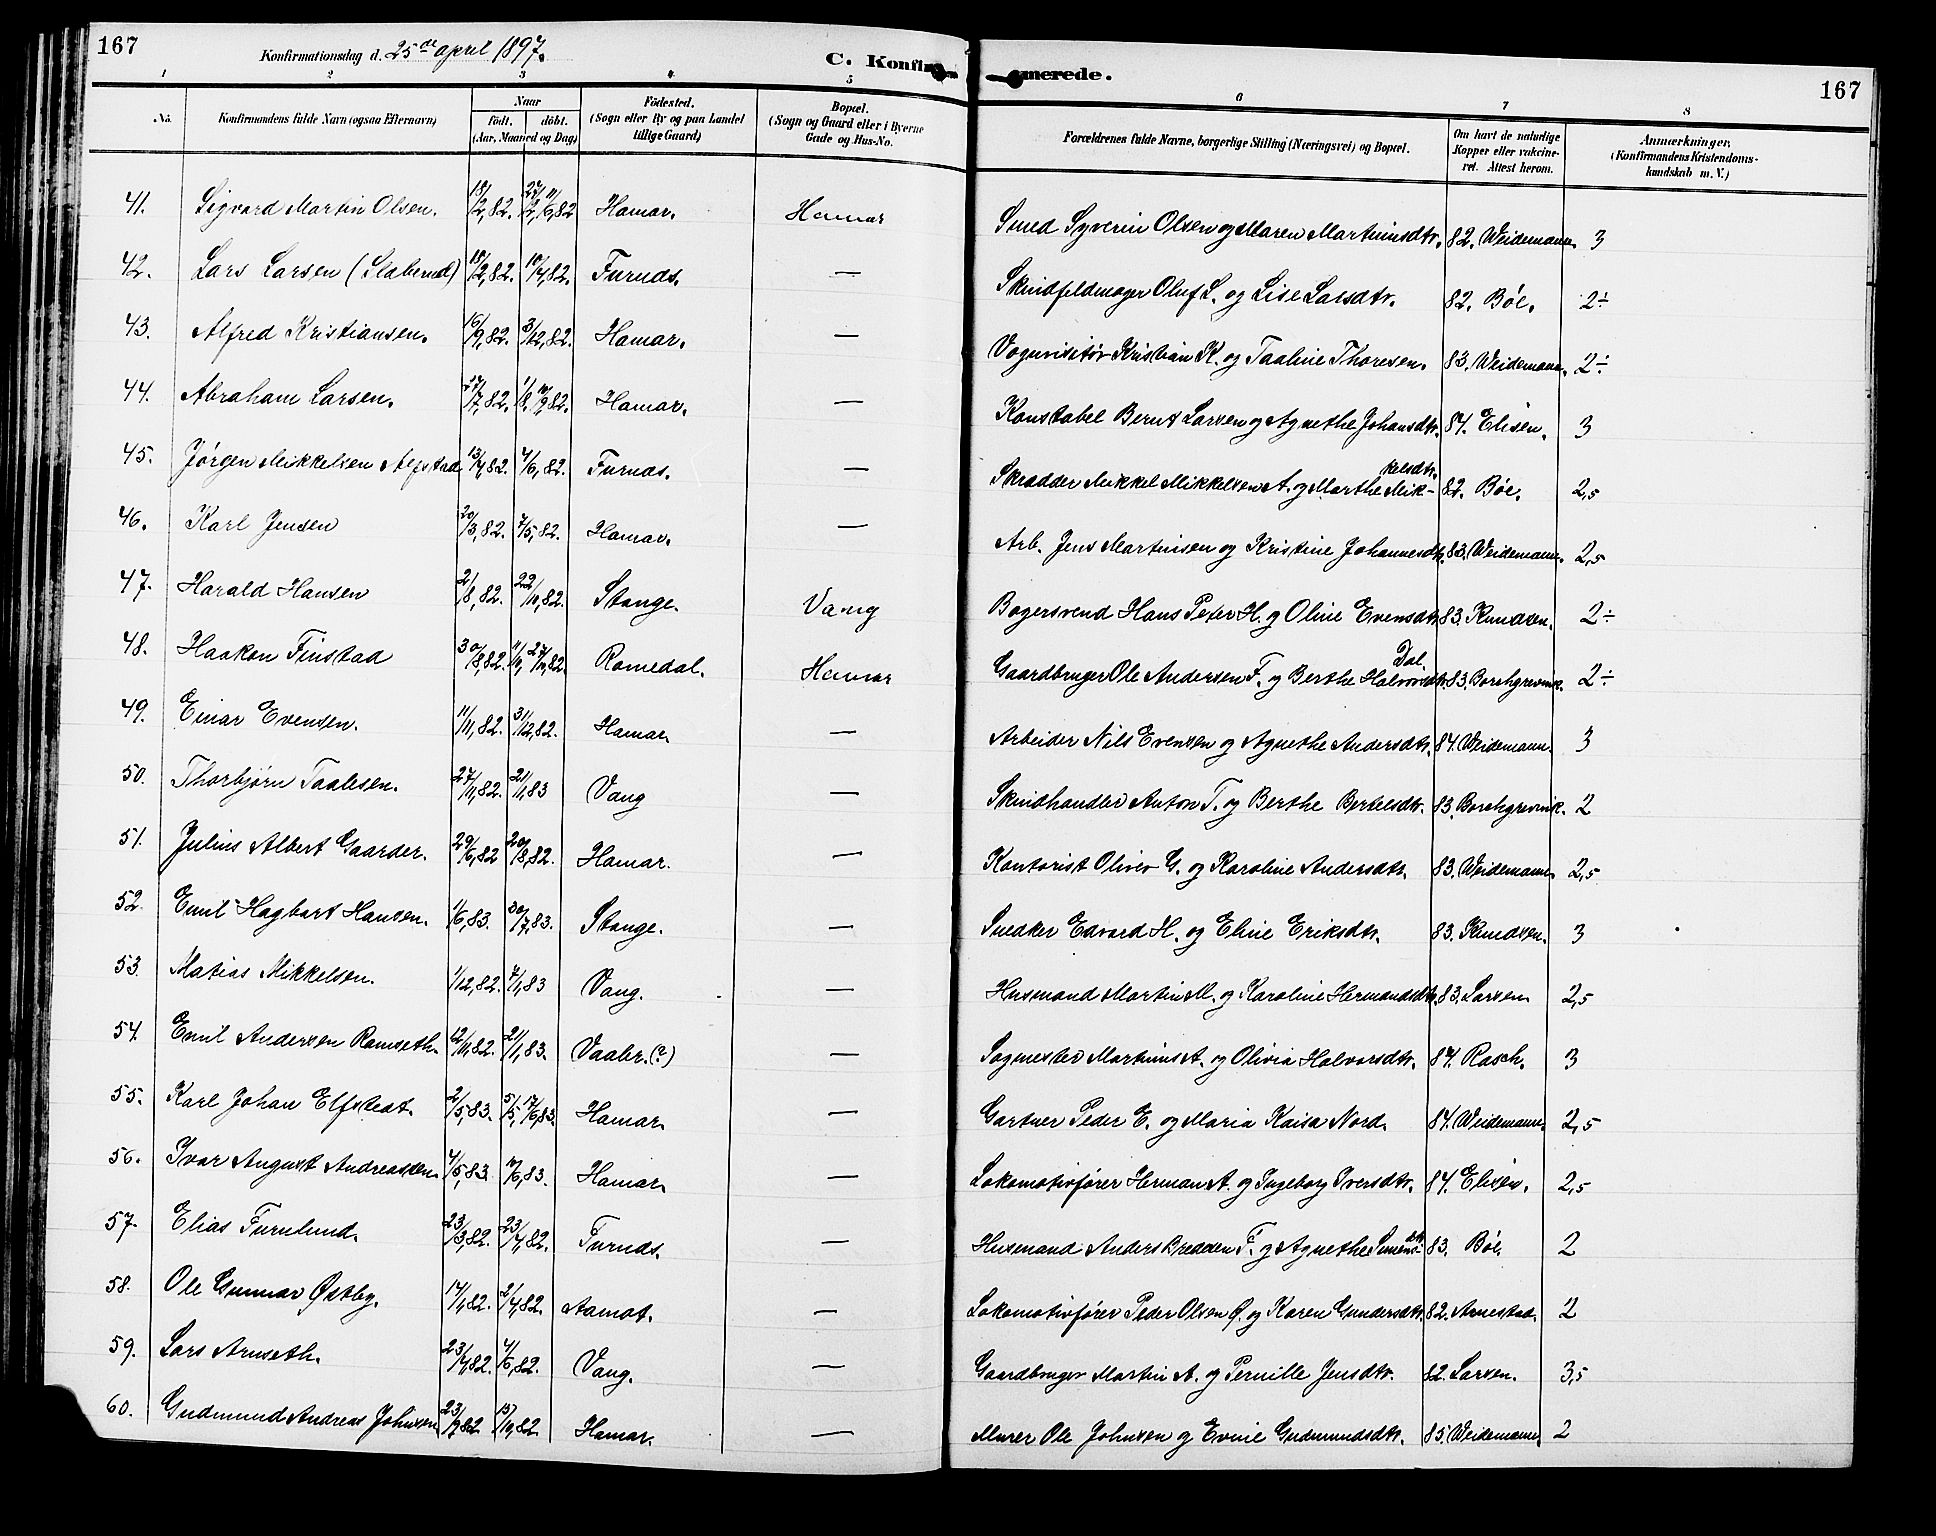 167
Konfirmationsdag d. 25de april 1897.
C. Konfirmerede.
167
1 2 3 4 5 6 7 8
No. Konfirmandens fulde Navn (ogsaa Efternavn) Naar födt. döbt. (Aar, Maaned og Dag) Födested. (Sogn eller By og paa Landet tillige Gaard) Bopæl. (Sogn og Gaard eller i Byerne Gade og Hus-No. Forældrenes fulde Navne, borgerlige Stilling (Næringsvei) og Bopæl. Om havt de naturlige Kopper eller vakcineret. Attest herom. Anmærkninger, (Konfirmandens Kristendomskundskab m. V.)
41. Sigvard Martin Olsen. 18/2,82. 27/2, 11/6,82 Hamar. Hamar Smed Syverin Olsen og Maren Martinusdtr. 82. Weidemann. 3
42. Lars Larsen (Slaberud) 18/2,82. 10/4,82. Furnds. — Skindfeldmager Oluf L. og Lise Larsdtr. 82. Böe. 2÷
43. Alfred Kristiansen. 16/9,82. 3/12,82. Hamar. — Vognvisitör Kristian K. og Taaline Thoresen. 83. Weidemann. 2÷
44. Abraham Larsen. 17/7,82. 1/8, 10/9,82. Hamar. — Konstabel Bernt Larsen og Agnethe Johansdtr. 84. Elisen. 3
45. Jörgen Mikkelsen Alfstad 13/4,82. 4/6,82. Furnds. — Skrædder Mikkel Mikkelsen A. og Marthe Mikkelsdtr. 82. Böe. 2,5
46. Karl Jensen 20/3,82. 7/5,82. Hamar. — Arb. Jens Martinsen og Kristine Johannesdtr. 83. Weidemann. 2,5
47. Harald Hansen 2/8,82. 22/10,82. Stange. Vang Bagersvend Hans Peter H. og Oline Evensdtr. 83. Knudsen. 2÷
48. Haakon Finstad 30/8,82. 11/9, 27/10,82. Romedal. Hamar Gaardbruger Ole Andersen F. og Berthe Halvorsdtr. Dal. 83. Borchgrevink. 2÷
49. Einar Evensen. 11/11,82. 31/12,82. Hamar. — Arbeider Nils Evensen og Agnethe Andersdtr. 84. Weidemann. 3
50. Thorbjörn Taalesen. 27/11,82. 21/1,83 Vang — Skindhandler Anton T. og Berthe Bertelsdtr. 83. Borchgrevink. 2
51. Julius Albert Gaarder. 29/6,82 20/8,82. Hamar. — Kontorist Oliver G. og Karoline Andersdtr. 83. Weidemann. 2,5
52. Emil Hagbart Hansen. 1/6,83. 30/7,83. Stange. — Snedker Edvard H. og Eline Eriksdtr. 83. Knudsen. 3
53. Matias Mikkelsen. 1/12,82. 7/1,83 Vang. — Husmand Martin M. og Karoline Hermandsdtr. 83. Larsen 2,5
54. Emil Andersen Ramseth. 12/11,82. 21/1,83. Vaaler. (?) — Sagmester Martinus A. og Olivia Halvorsdtr. 84. Rasch. 3
55. Karl Johan Elfstedt. 2/5,83. 5/5, 17/6,83. Hamar. — Gartner Peder E. og Maria Kaisa Nord. 84. Weidemann. 2,5
56. Ivar August Andreassen. 4/5,83. 10/6,83. Hamar. — Lokomotivförer Herman A. og Ingeborg Iversdtr. 84. Elisen. 2,5
57. Elias Furulund. 23/3,82. 23/4,82. Furnds. — Husmand Anders Bredesen F. og Agnethe Simensdtr. 83. Böe 2
58. Ole Gunnar Østby. 17/1,82. 2/4,82. Aamot. — Lokomotivförer Peder Olsen Ø. og Karen Gundersdtr. 82. Arnestad. 2
59. Lars Arnseth. 23/4,82. 4/6,82. Vang. — Gaardbruger Martin A. og Pernille Jensdtr. 82. Larsen. 3,5
60. Gudmund Andreas Johnsen 23/9,82 15/10,82. Hamar. — Murer Ole Johnsen og Evine Gudmundsdtr. 85. Weidemann. 2